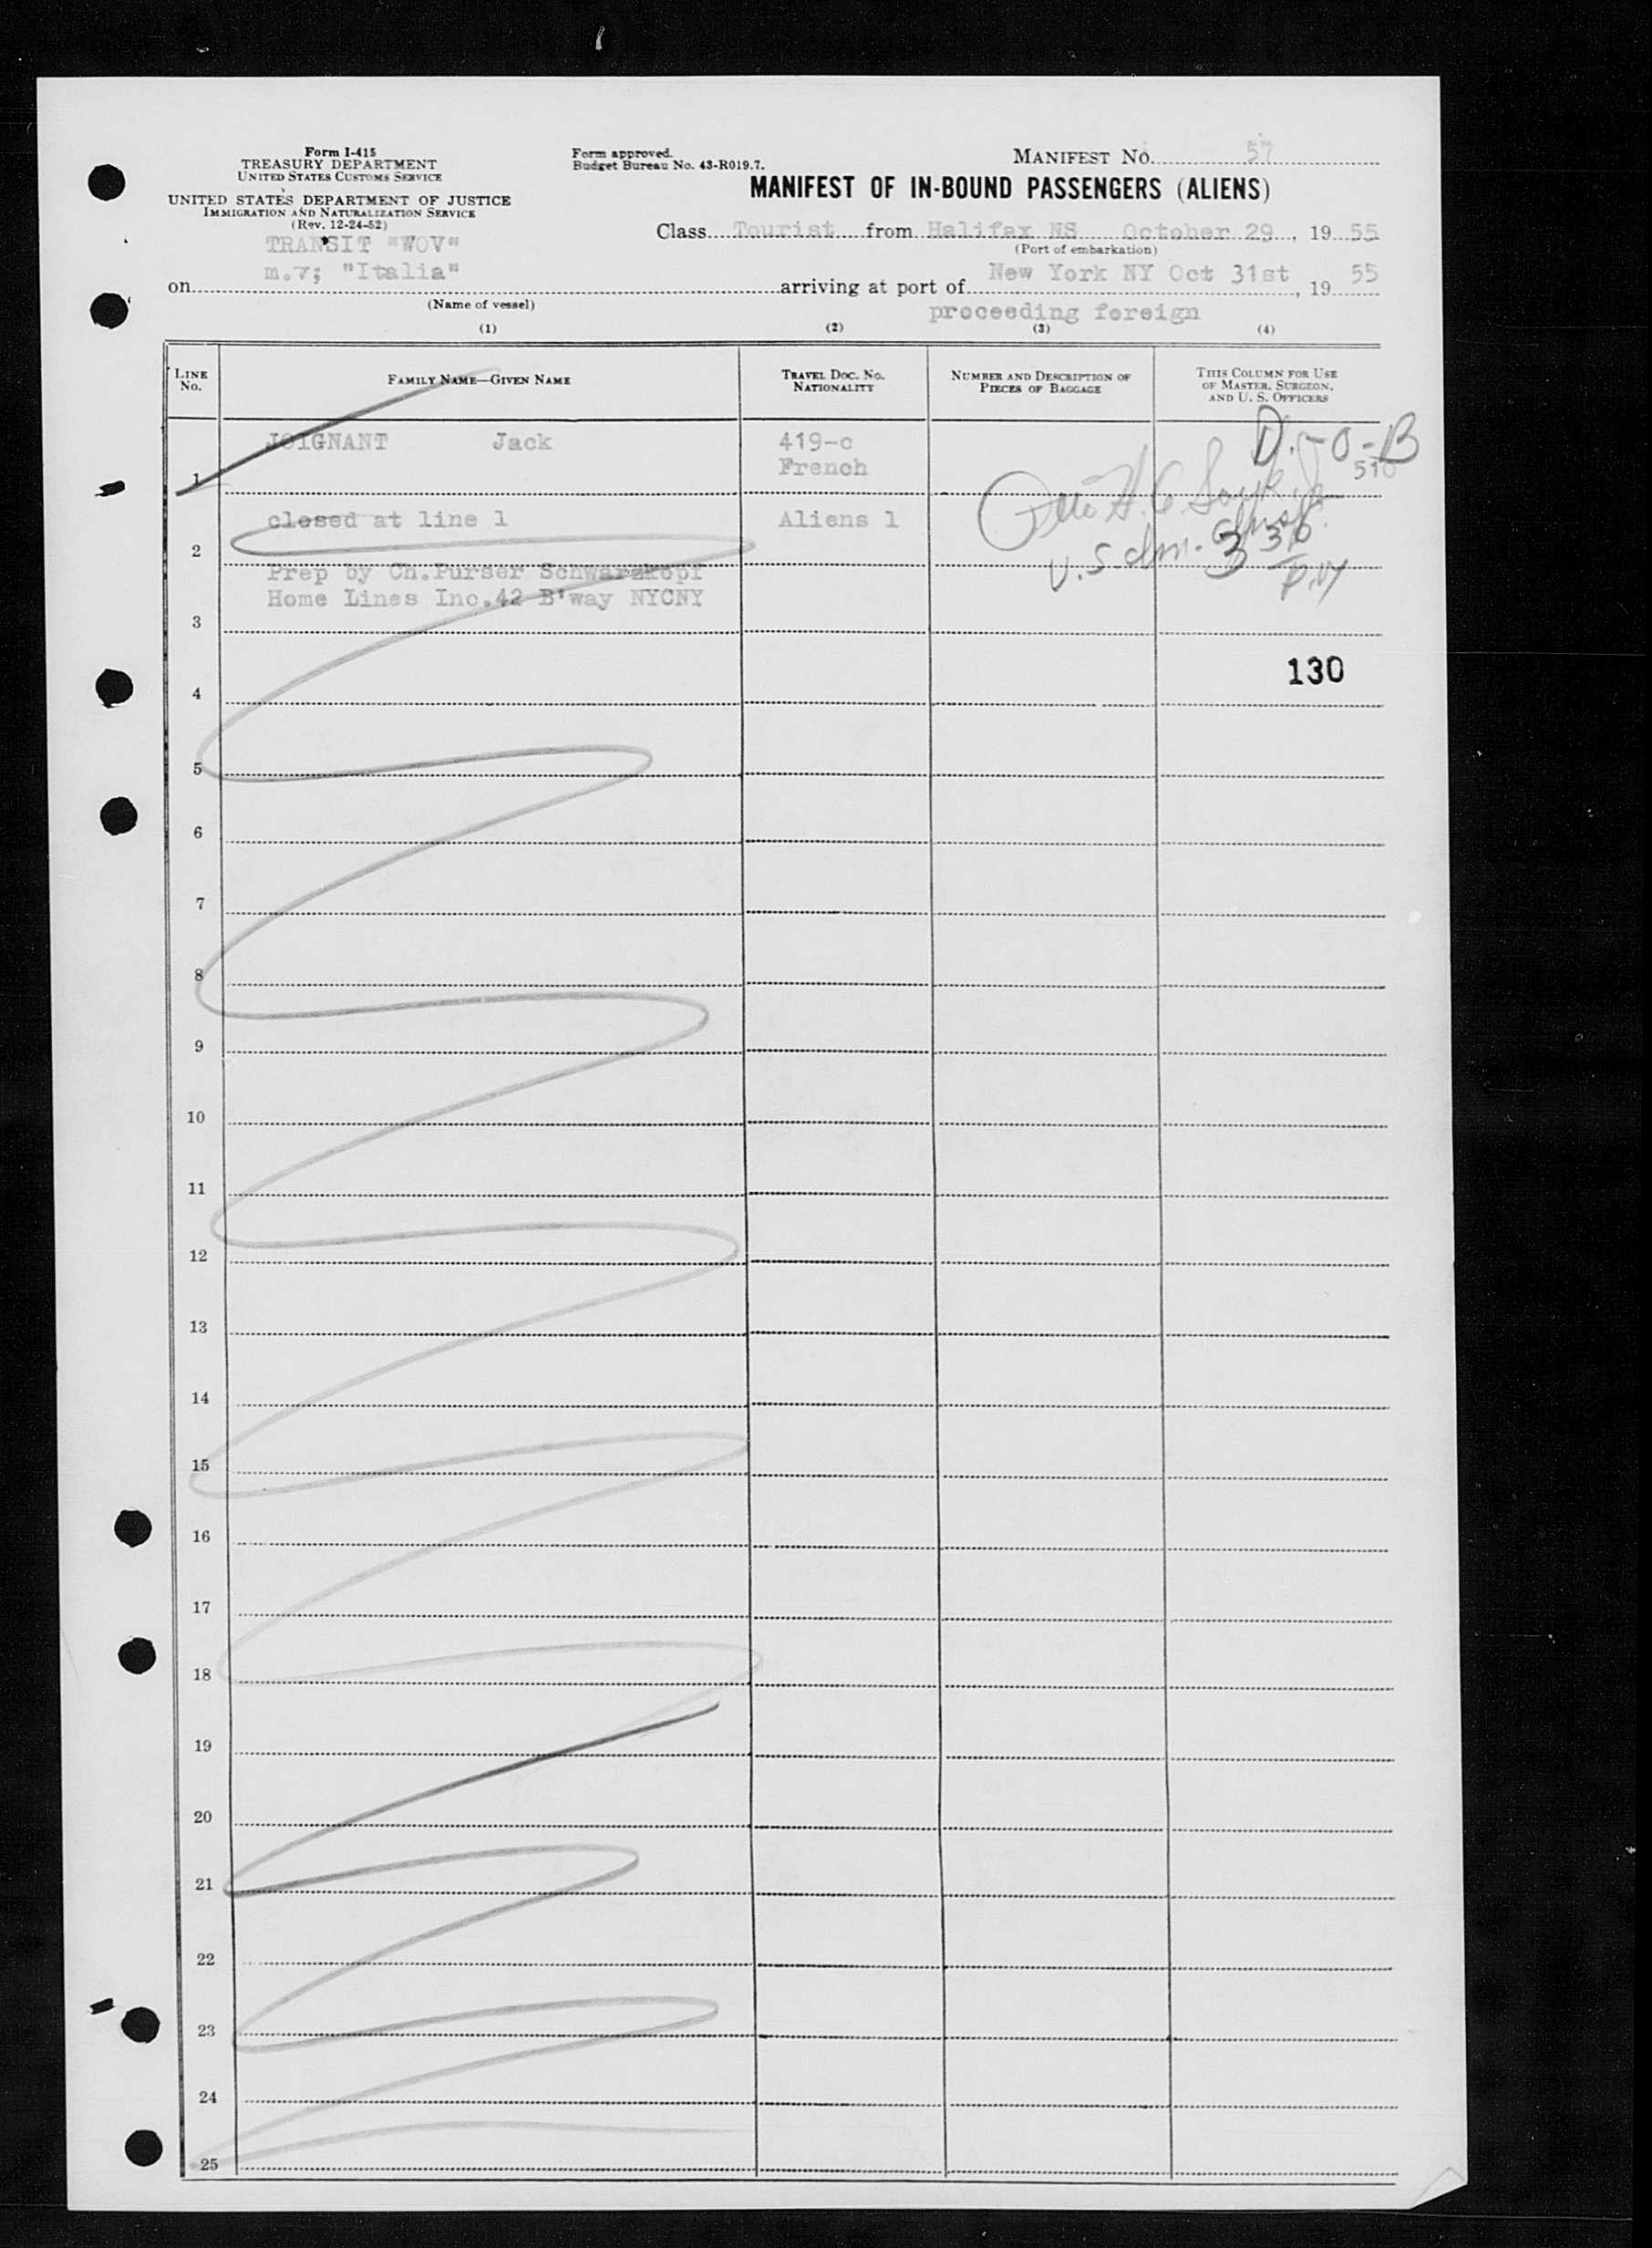 Form I-415
TREASURY DEPARTMENT
UNITED STATES CUSTOMS SERVICE
UNITED STATES DEPARTMENT OF JUSTICE
IMMIGRATION AND NATURALIZATION SERVICE
(Rev. 12-24-52)
Form approved.
Budget Bureau No. 43-R019.7.
MANIFEST NO. 57
MANIFEST OF IN-BOUND PASSENGERS (ALIENS)
Class Tourist from Halifax NS October 29, 1955
(Port of embarkation)
TRANSIT "WOV"
on m.v; "Italia" arriving at port of New York NY Oct 31st, 1955
(Name of vessel)
proceeding foreign
(1) (2) (3) (4)
LINE No. FAMILY NAME—GIVEN NAME TRAVEL DOC. NO. NATIONALITY NUMBER AND DESCRIPTION OF PIECES OF BAGGAGE THIS COLUMN FOR USE OF MASTER, SURGEON, AND U. S. OFFICERS
D.-O-B
JOIGNANT Jack 419-c
French 510
1
closed at line 1 Aliens 1
2
U.S. Imm. 3 30 P.M
Prep by Ch.Purser Schwarzkopf
Home Lines Inc.42 B'way NYCNY
3
130
4
5
6
7
8
9
10
11
12
13
14
15
16
17
18
19
20
21
22
23
24
25